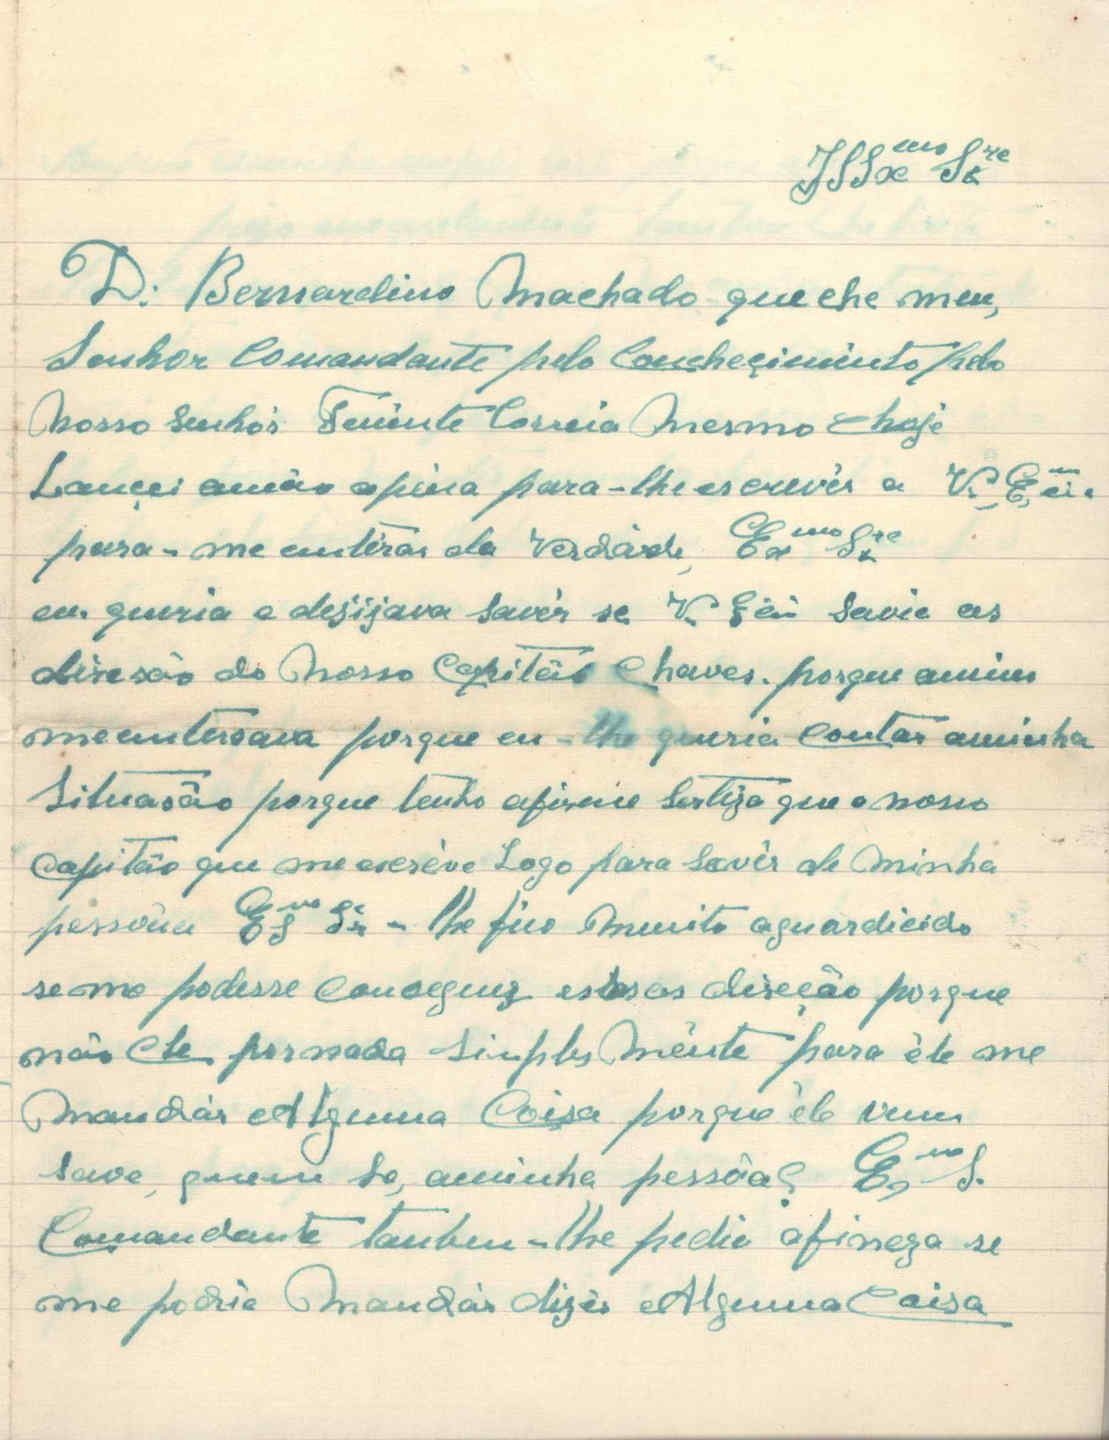 D. Bernardino Machado que che meu,
Senhor Comandante pelo Concheçimiinto pelo
Nosso Senhór Teniinte Correia Mesmo choje
Lançei amão apina para-lhe escrevêr a V. Eˣ.ciª
para-me entirár da Verdáde, Exmo Snre
eu queria e desijava Savêr se V. Eˣciª Savia as
diresão do Nosso Capitão Chaves. porque amim
meenterssava porque eu-lhe queria Contar aminha
Situasão porque tenho afirme Sertiza que o nosso
Capitão que me escréve Logo para Savêr de Minha
pessôua Esmo Snr - lhe fico Muito aguardicido
se me podesse Conceguiz estas as direção porque
não che pornada SimplesMénte para êle me
Mandár Alguma Coisa porque êle vem
save, quem Se, aminha pessôa? Exmo S.
Comandante tanben-lhe pedia afineza se
me podria Mandár dizêr Alguma Caisa